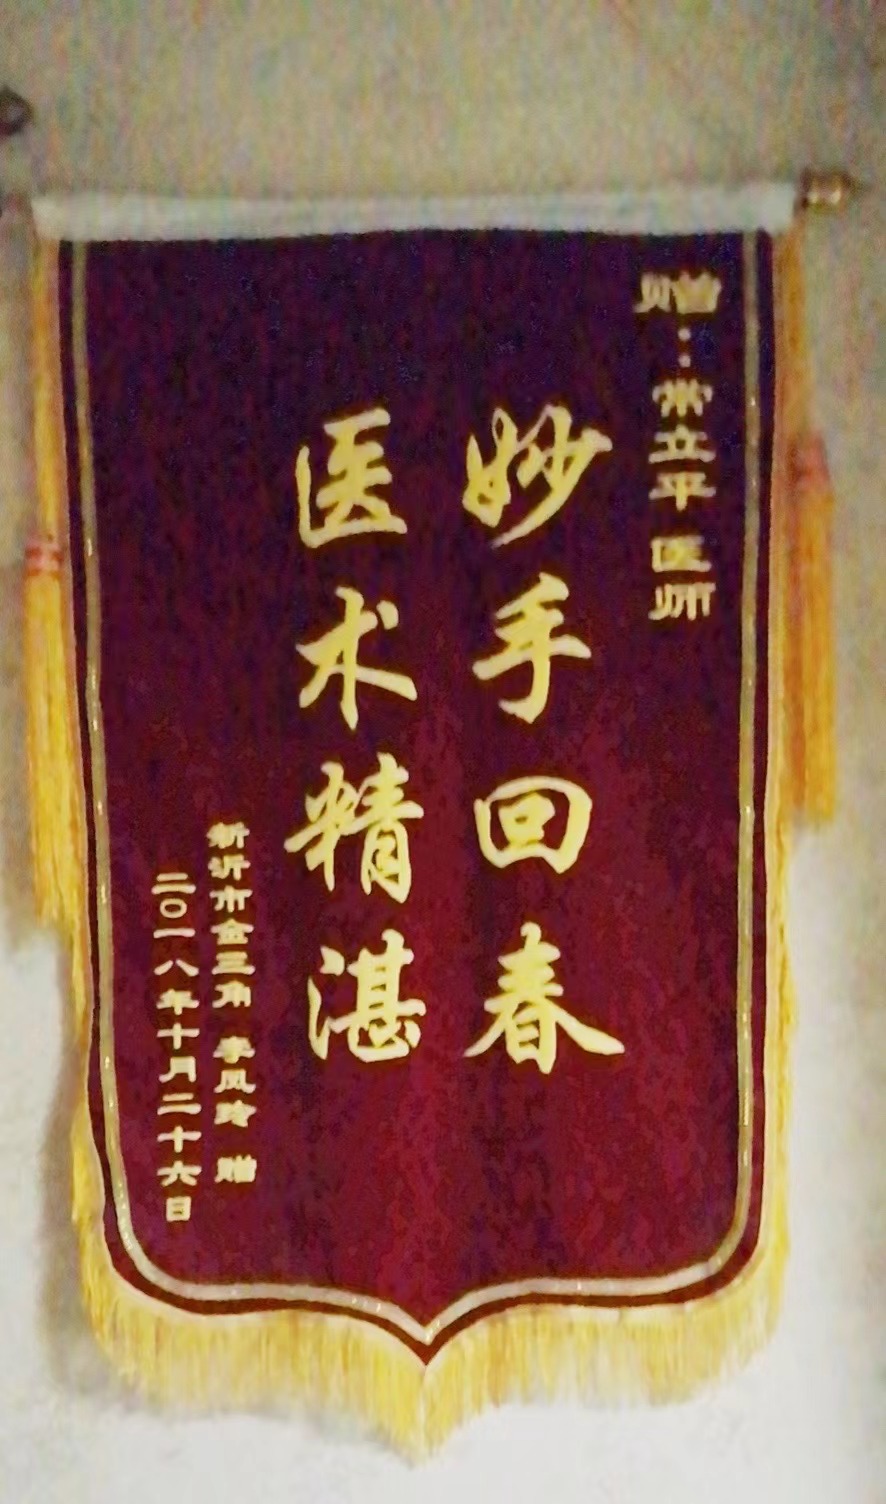 赠：常立平 医师
妙手回春
医术精湛
新沂市金三角 李凤玲 赠
二〇一八年十月二十六日